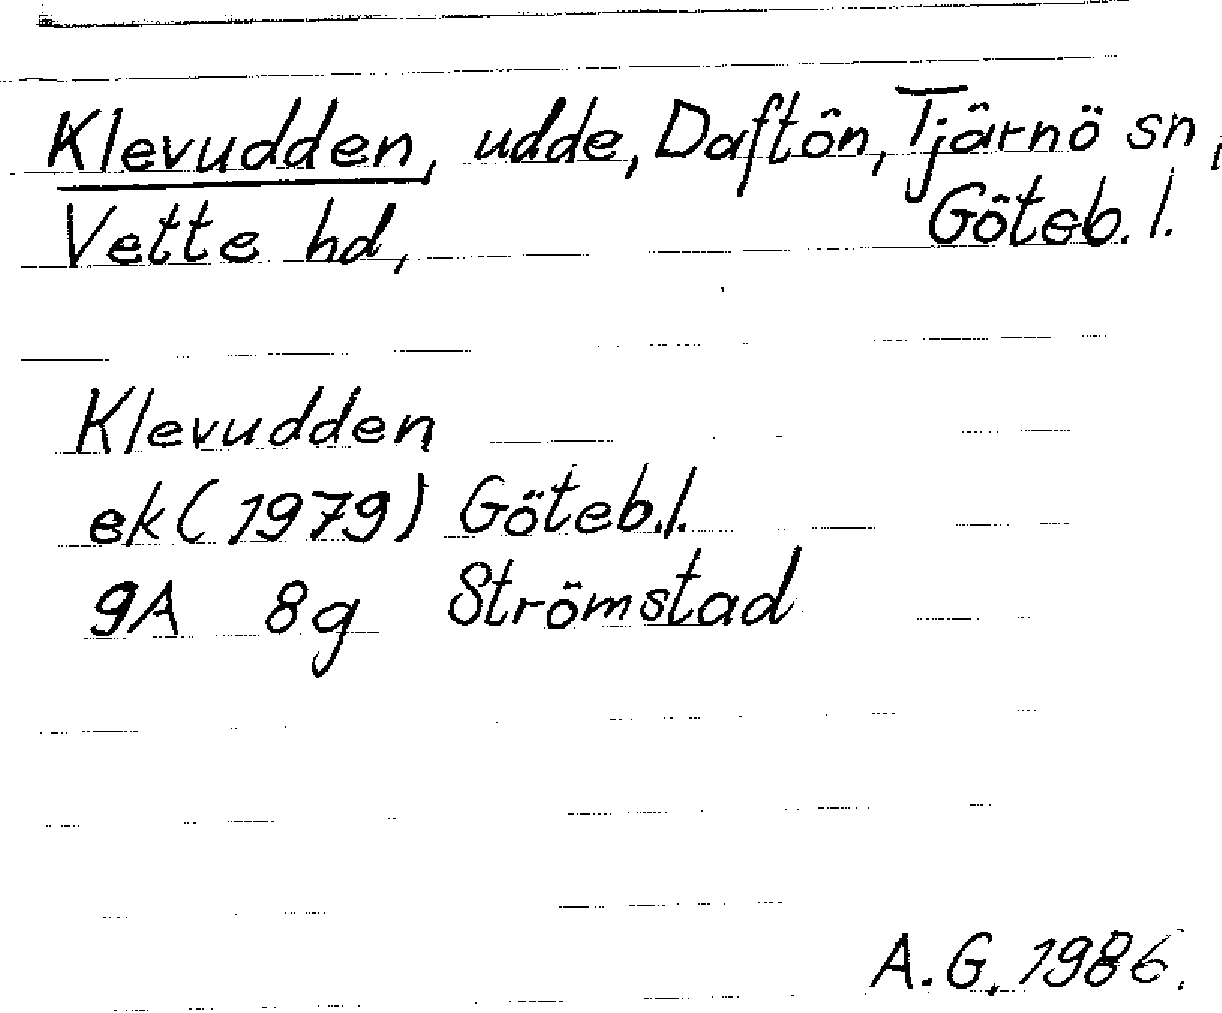 Klevudden, udde, Daftön, Tjärnö sn,
Vette hd, Göteb. l.
Klevudden
ek (1979) Göteb.l.
9A 8g Strömstad
A.G. 1986.